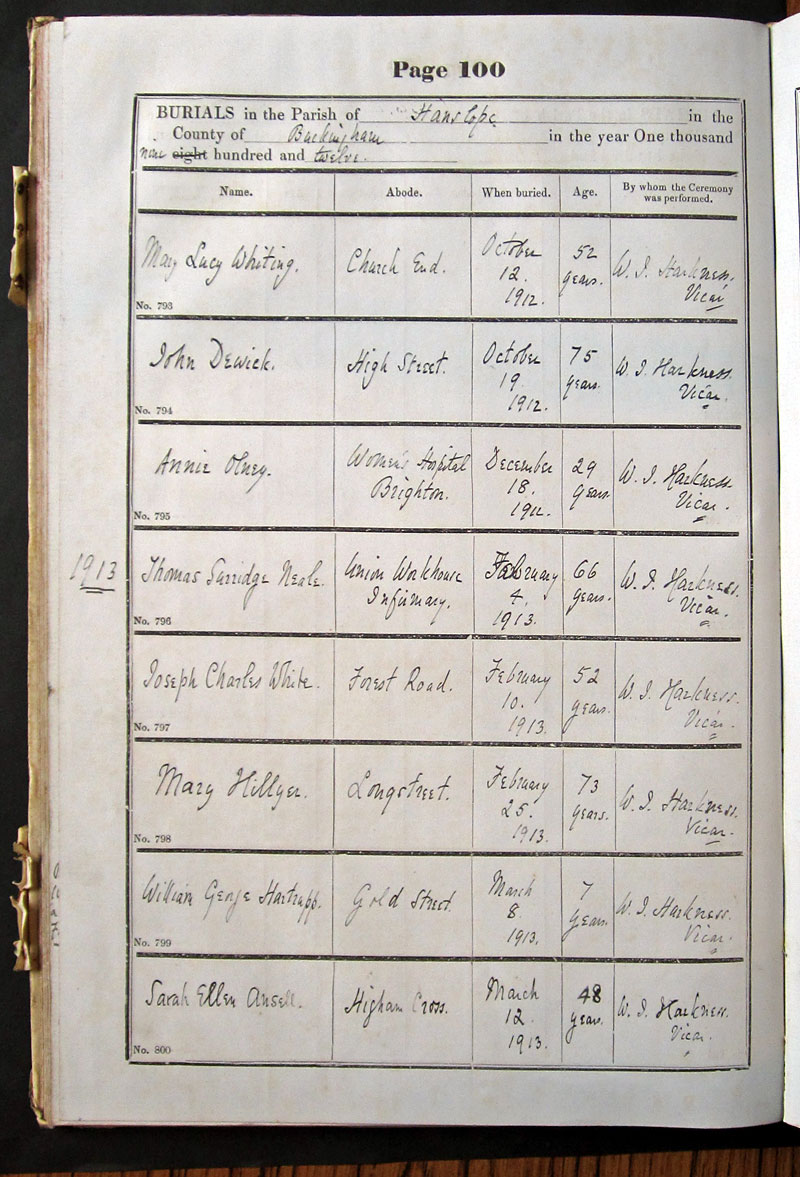 Page 100
BURIALS in the Parish of Hanslope in the
County of Buckingham in the year One thousand
nine eight hundred and twelve.
Name. Abode. When buried. Age. By whom the Ceremony
was performed.
Mary Lucy Whiting. Church End. October 52 W. J. Harkness.
12. years. Vicar
1912.
No. 793
John Dewick. High Street. October 75 W. J. Harkness.
19. years. Vicar.
1912.
No. 794
Annie Olney. Women's Hospital December 29 W. J. Harkness
Brighton. 18. years. Vicar.
1912.
No. 795
1913 Thomas Surridge Neale. Union Workhouse February 66 W. J. Harkness.
Infirmary. 4. years. Vicar.
1913.
No. 796
Joseph Charles White. Forest Road. February 52 W. J. Harkness.
10. years. Vicar.
1913.
No. 797
Mary Hillyer. Longstreet. February 73 W. J. Harkness.
25. years. Vicar.
1913.
No. 798
William George Hartrupp. Gold Street. March 7 W. J. Harkness.
8. years. Vicar.
1913.
No. 799
Sarah Ellen Ansell. Higham Cross. March 48 W. J. Harkness.
12. years. Vicar.
1913.
No. 800